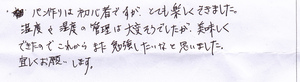 ・パン作りは初心者ですが、とても楽しくできました。
温度や湿度の管理は大変そうでしたが、美味しく
できたのでこれからまた勉強したいなと思いました。
宜しくお願いします。